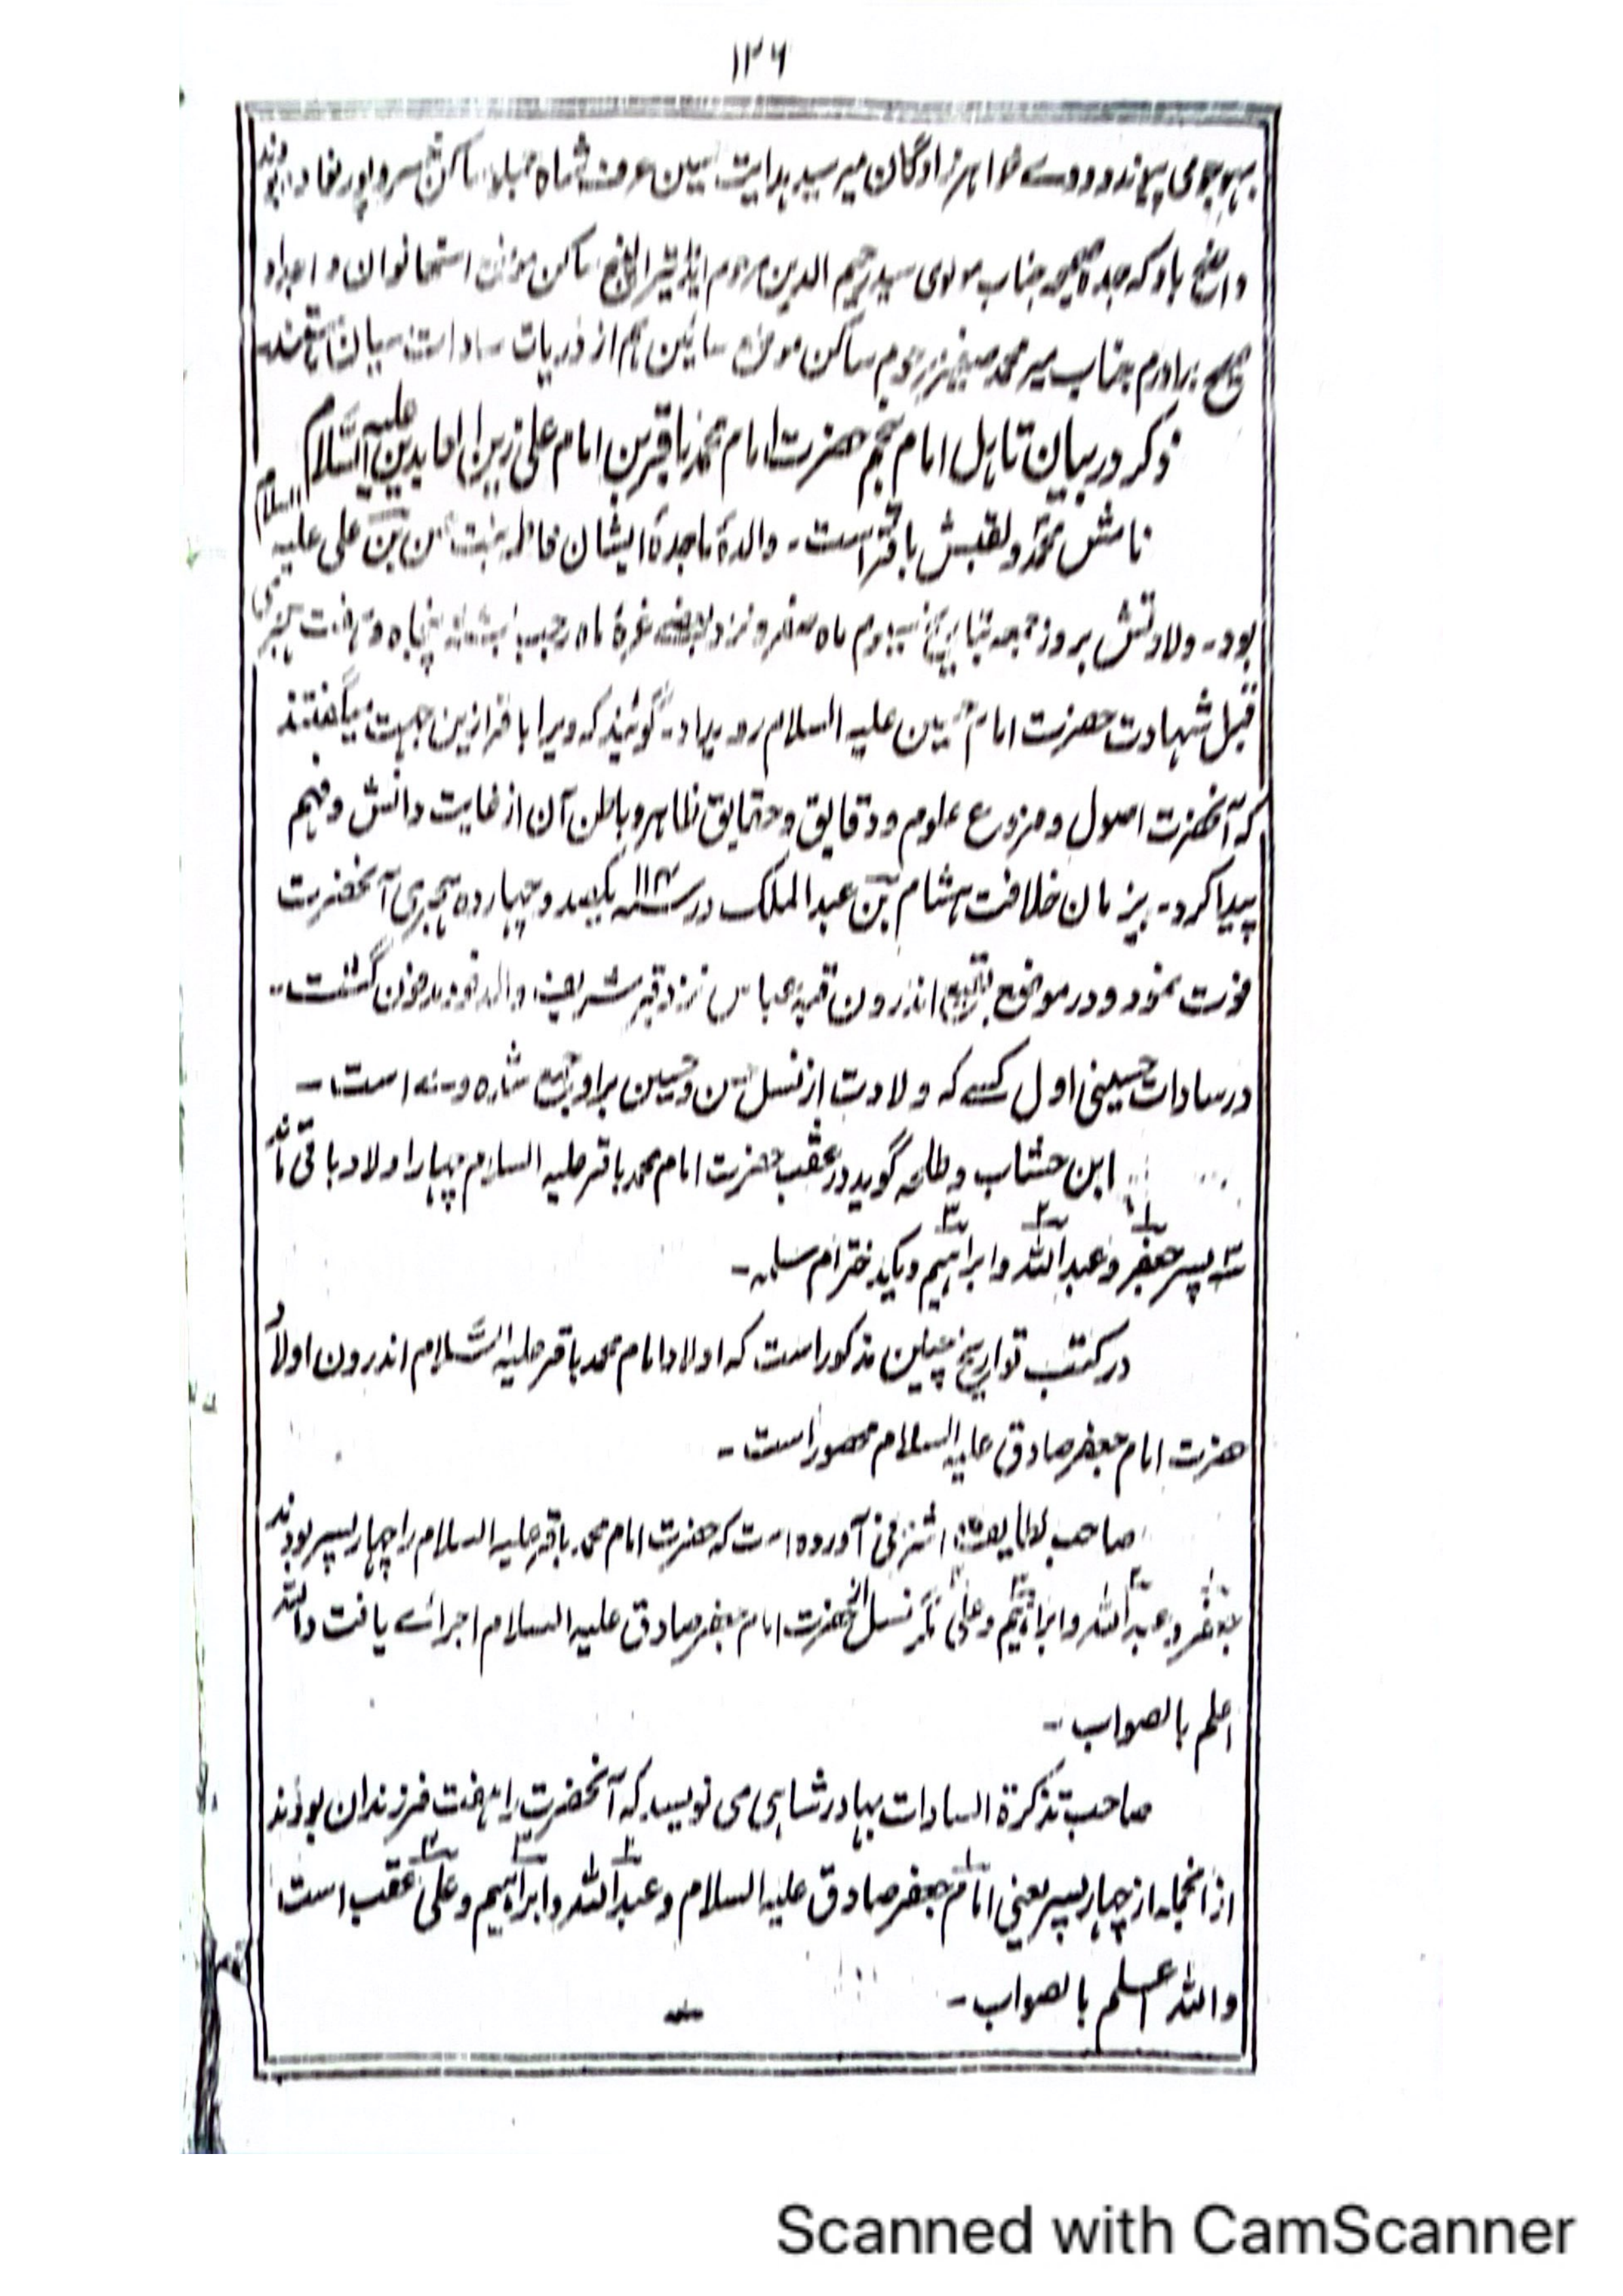 ۱۲۶
بہوجومی پہاندو ودوے خواہرزادگان میر سید ہدایت حسین عرف شاہ ساکن بودند
واضح باد کہ جدہ صحیحہ جناب مولوی سید رحیم الدین مرحوم ایڈیٹر الپنچ ساکن موضع استھانوان و اجداد
صحیح برادرم جناب میر محمد صغیر مرحوم ساکن موضع سائین ہم از ذریات سادات ہستند
ذکر در بیان تاہل امام پنجم حضرت امام محمد باقر بن امام علی زین العابدین علیہ السَّلام
نامش محمد ولقبش باقر است۔ والدۂ ماجدۂ ایشان فاطمہ بنت حسن بن علی علیہ السلام
بود۔ ولادتش بروز جمعہ بتاریخ سیوم ماہ صفر و نزد بعضے غرۂ ماہ رجب پنجاہ و ہفت ہجری
قبل شہادت حضرت امام حسین علیہ السلام رو بداد۔ گویند کہ ویرا باقر ازین جہت میگفتند
کہ آنحضرت اصول و فروع علوم و دقایق و حقایق ظاہر و باطن آن از غایت دانش و فہم
پیدا کرد۔ بزمان خلافت ہشام بن عبد الملک در ۱۱۴ یکصد و چہاردہ ہجری آنحضرت
فوت نمود و در موضع بقیع اندرون قبہ عباس نزد قبر شریف والد خود مدفون گشت۔
در سادات حسینی اول کسے کہ ولادت از نسل حسن و حسین براو جمع شدہ است۔
ابن خشاب و طلحہ گوید در عقب حضرت امام محمد باقر علیہ السلام چہار اولاد باقی ماند
۳ پسر جعفر ۱ و عبد اللہ ۲ و ابراہیم ۳ و یکدختر ام سلمہ۔
در کتب تواریخ چنین مذکور است کہ اولاد امام محمد باقر علیہ السَّلام اندرون اولاد
حضرت امام جعفر صادق علیہ السلام محصور است۔
صاحب لطایف اشرفی آوردہ است کہ حضرت امام محمد باقر علیہ السلام را چہار پسر بودند
جعفر و عبد اللہ و ابراہیم و علی مگر نسل از حضرت امام جعفر صادق علیہ السلام اجراے یافت واللہ
اعلم بالصواب۔
صاحب تذکرۃ السادات بہادر شاہی می نویسد کہ آنحضرت را ہفت فرزندان بودند
از انجملہ از چہار پسر یعنی امام جعفر صادق ۱ علیہ السلام و عبد اللہ ۲ و ابراہیم ۳ و علی ۴ عقب است
واللہ اعلم بالصواب۔
Scanned with CamScanner